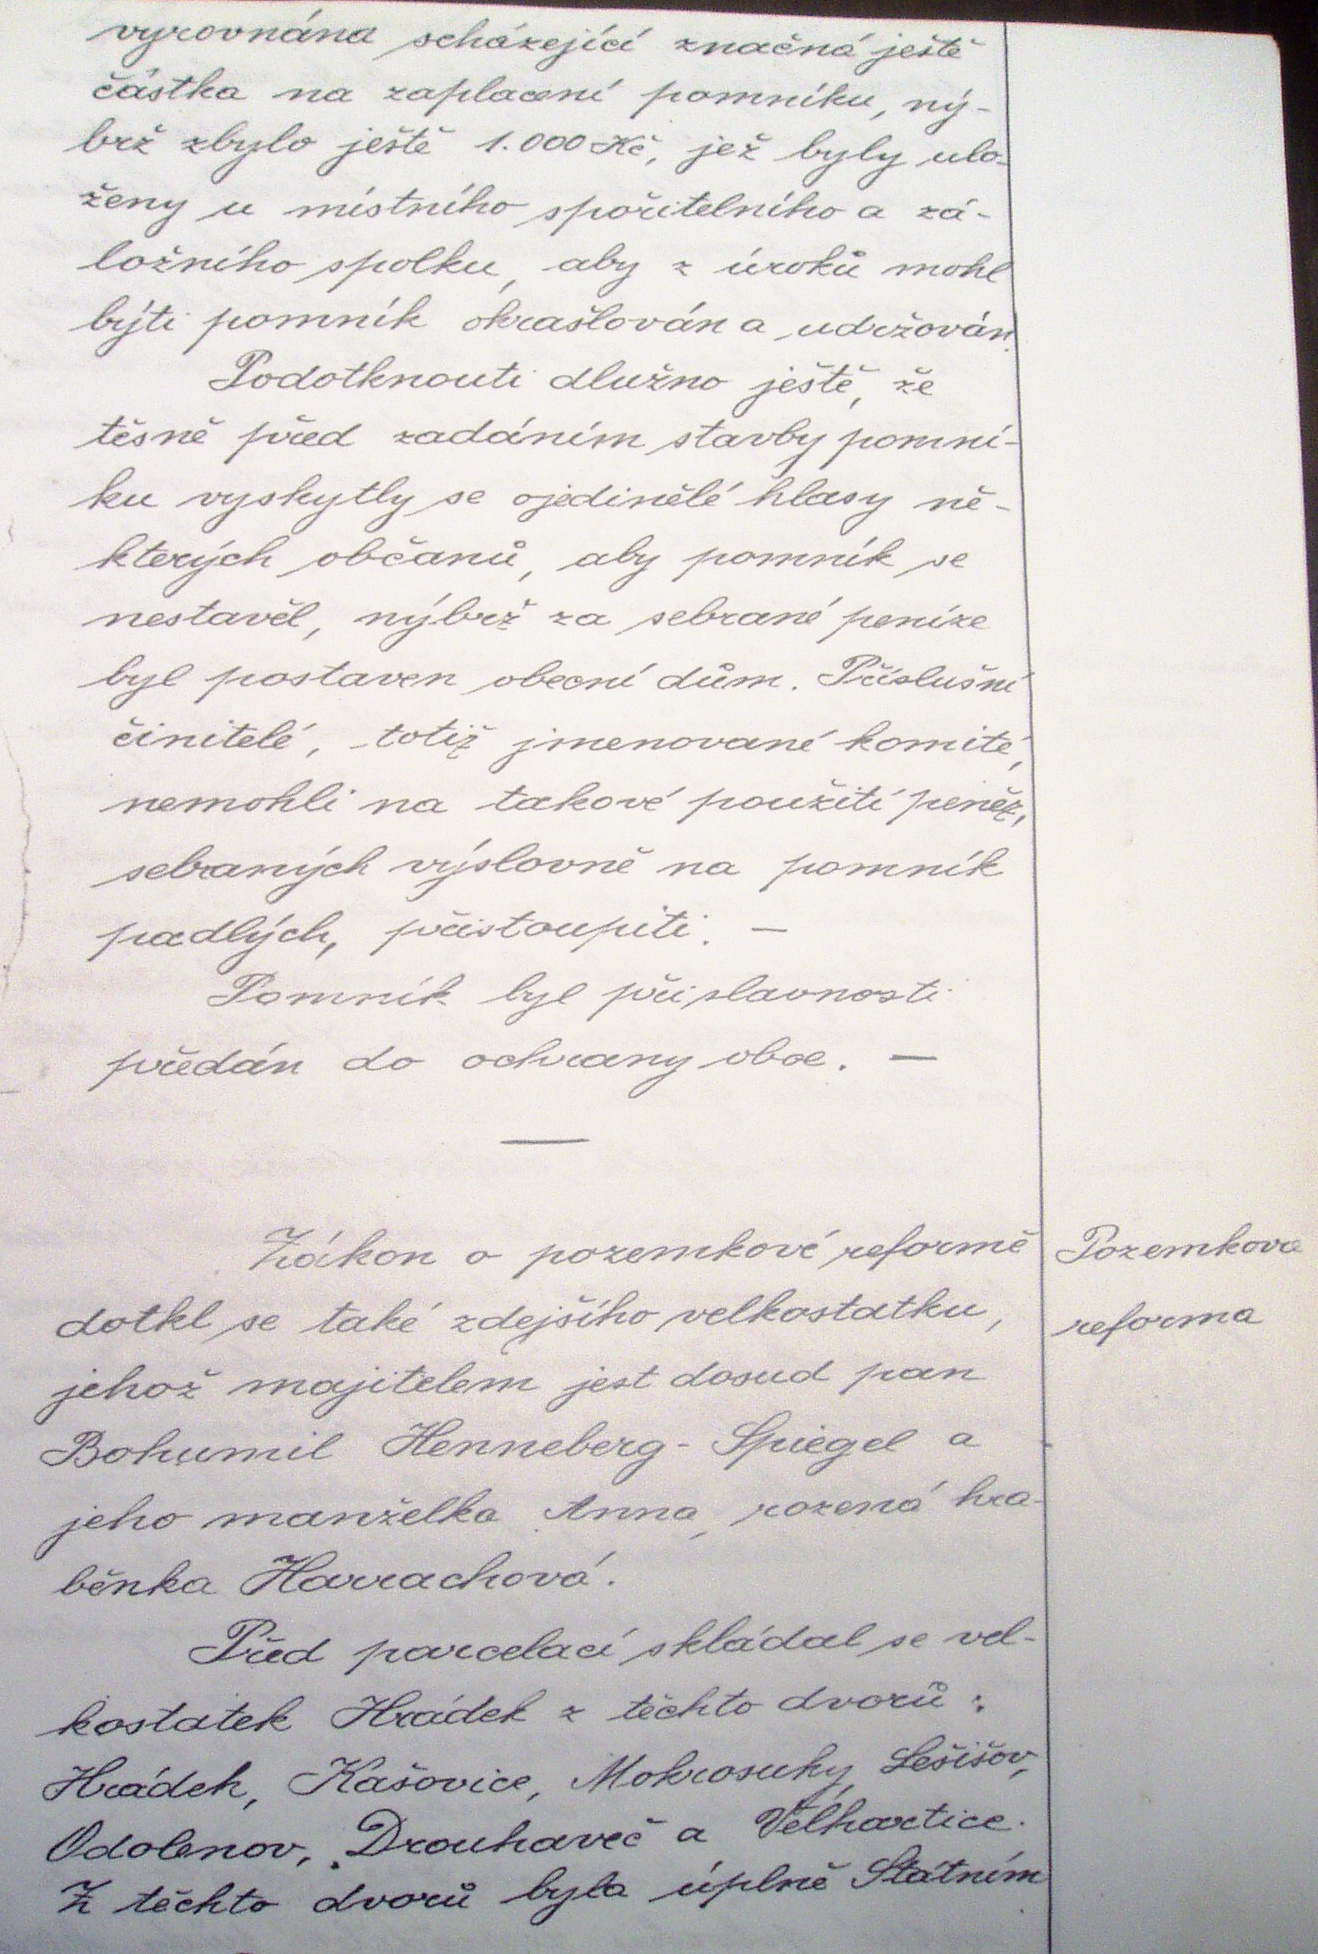 vyrovnána scházející značná ještě
částka na zaplacení pomníku, ný-
brž zbylo ještě 1.000 Kč, jež byly ulo-
ženy u místního spořitelního a zá-
ložního spolku, aby z úroků mohl
býti pomník okrašlován a udržován.
Podotknouti dlužno ještě, že
těsně před zadáním stavby pomní-
ku vyskytly se ojedinělé hlasy ně-
kterých občanů, aby pomník se
nestavěl, nýbrž za sebrané peníze
byl postaven obecní dům. Příslušní
činitelé, totiž jmenované komité,
nemohli na takové použití peněz,
sebraných výslovně na pomník
padlých, přistoupiti. —
Pomník byl při slavnosti
předán do ochrany obce. —
—
Zákon o pozemkové reformě
Pozemková
dotkl se také zdejšího velkostatku,
reforma
jehož majitelem jest dosud pan
Bohumil Henneberg-Spiegel a
jeho manželka Anna, rozená hra-
běnka Harrachová.
Před parcelací skládal se vel-
kostatek Hrádek z těchto dvorů:
Hrádek, Kašovice, Mokrosuky, Lešišov,
Odolenov, Drouhaveč a Velhartice.
Z těchto dvorů byla úplně Státním